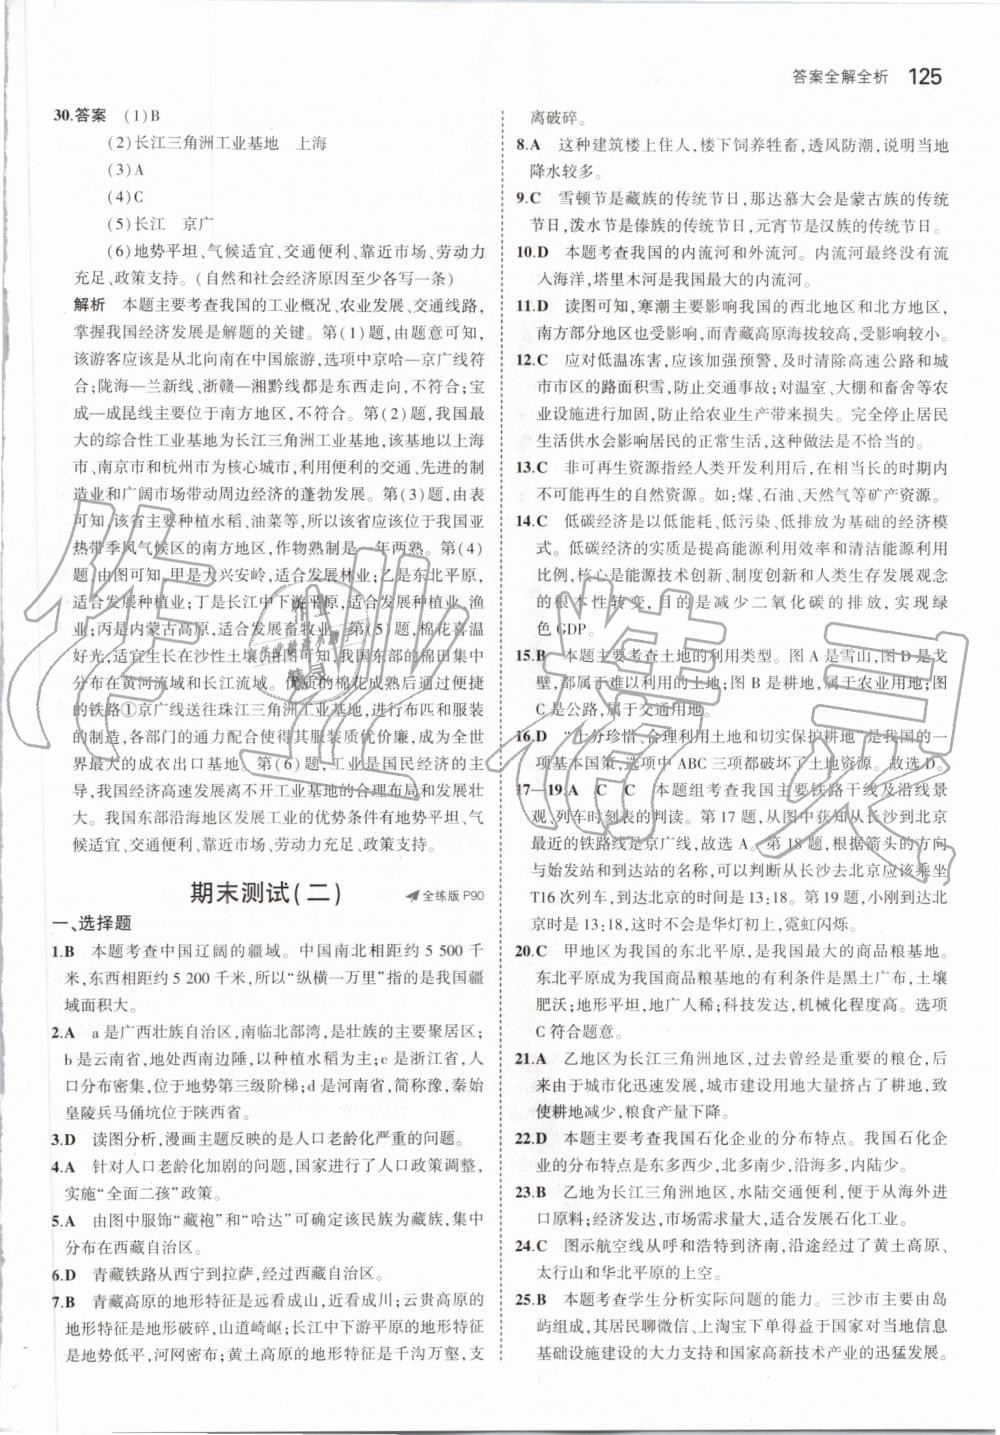 答案全解全析 125
30.答案 (1)B
(2)长江三角洲工业基地 上海
(3)A
(4)C
(5)长江 京广
(6)地势平坦、气候适宜、交通便利、靠近市场、劳动力
充足、政策支持。(自然和社会经济原因至少各写一条)
解析 本题主要考查我国的工业概况、农业发展、交通线路,
掌握我国经济发展是解题的关键。第(1)题,由题意可知,
该游客应该是从北向南在中国旅游,选项中京哈—京广线符
合;陇海—兰新线、浙赣—湘黔线都是东西走向,不符合;宝
成—成昆线主要位于南方地区,不符合。第(2)题,我国最
大的综合性工业基地为长江三角洲工业基地,该基地以上海
市、南京市和杭州市为核心城市,利用便利的交通、先进的制
造业和广阔市场带动周边经济的蓬勃发展。第(3)题,由表
可知,该省主要种植水稻、油菜等,所以该省应该位于我国亚
热带季风气候区的南方地区,作物熟制是一年两熟。第(4)
题,由图可知,甲是大兴安岭,适合发展林业;乙是东北平原,
适合发展种植业;丁是长江中下游平原,适合发展种植业、渔
业;丙是内蒙古高原,适合发展畜牧业。第(5)题,棉花喜温
好光,适宜生长在沙性土壤,由图可知,我国东部的棉田集中
分布在黄河流域和长江流域。优质的棉花成熟后通过便捷
的铁路①京广线送往珠江三角洲工业基地,进行布匹和服装
的制造,各部门的通力配合使其服装质优价廉,成为全世界
最大的成衣出口基地。第(6)题,工业是国民经济的主
导,我国经济高速发展离不开工业基地的合理布局和发展壮
大。我国东部沿海地区发展工业的优势条件有地势平坦、气
候适宜、交通便利、靠近市场、劳动力充足、政策支持。
期末测试(二) 全练版 P90
一、选择题
1.B 本题考查中国辽阔的疆域。中国南北相距约 5 500 千
米,东西相距约 5 200 千米,所以“纵横一万里”指的是我国疆
域面积大。
2.A a是广西壮族自治区,南临北部湾,是壮族的主要聚居区;
b是云南省,地处西南边陲,以种植水稻为主;c是浙江省,人
口分布密集,位于地势第三级阶梯;d是河南省,简称豫,秦始
皇陵兵马俑坑位于陕西省。
3.D 读图分析,漫画主题反映的是人口老龄化严重的问题。
4.A 针对人口老龄化加剧的问题,国家进行了人口政策调整,
实施“全面二孩”政策。
5.A 由图中服饰“藏袍”和“哈达”可确定该民族为藏族,集中
分布在西藏自治区。
6.D 青藏铁路从西宁到拉萨,经过西藏自治区。
7.B 青藏高原的地形特征是远看成山,近看成川;云贵高原的
地形特征是地形破碎,山道崎岖;长江中下游平原的地形特征
是地势低平,河网密布;黄土高原的地形特征是千沟万壑,支
离破碎。
8.A 这种建筑楼上住人,楼下饲养牲畜,透风防潮,说明当地
降水较多。
9.C 雪顿节是藏族的传统节日,那达慕大会是蒙古族的传统
节日,泼水节是傣族的传统节日,元宵节是汉族的传统节日。
10.D 本题考查我国的内流河和外流河。内流河最终没有流
入海洋,塔里木河是我国最大的内流河。
11.D 读图可知,寒潮主要影响我国的西北地区和北方地区,
南方部分地区也受影响,而青藏高原海拔较高,受影响较小。
12.C 应对低温冻害,应该加强预警,及时清除高速公路和城
市市区的路面积雪,防止交通事故;对温室、大棚和畜舍等农
业设施进行加固,防止给农业生产带来损失。完全停止居民
生活供水会影响居民的正常生活,这种做法是不恰当的。
13.C 非可再生资源指经人类开发利用后,在相当长的时期内
不可能再生的自然资源。如:煤、石油、天然气等矿产资源。
14.C 低碳经济是以低能耗、低污染、低排放为基础的经济模
式。低碳经济的实质是提高能源利用效率和清洁能源利用
比例,核心是能源技术创新、制度创新和人类生存发展观念
的根本性转变,目的是减少二氧化碳的排放,实现绿
色GDP。
15.B 本题主要考查土地的利用类型。图A是雪山,图D是戈
壁,都属于难以利用的土地;图B是耕地,属于农业用地;图
C是公路,属于交通用地。
16.D “十分珍惜、合理利用土地和切实保护耕地”是我国的一
项基本国策,选项中ABC三项都破坏了土地资源。故选D。
17—19.A C C 本题组考查我国主要铁路干线及沿线景
观、列车时刻表的判读。第17题,从图中获知从长沙到北京
最近的铁路线是京广线,故选A。第18题,根据箭头的方向
与始发站和到达站的名称,可以判断从长沙去北京应该乘坐
T16次列车,到达北京的时间是13:18。第19题,小刚到达北
京时是13:18,这时不会是华灯初上,霓虹闪烁。
20.C 甲地区为我国的东北平原,是我国最大的商品粮基地。
东北平原成为我国商品粮基地的有利条件是黑土广布,土壤
肥沃;地形平坦,地广人稀;科技发达,机械化程度高。选项
C符合题意。
21.A 乙地区为长江三角洲地区,过去曾是重要的粮仓,后
来由于城市化迅速发展,城市建设用地大量挤占了耕地,致
使耕地减少,粮食产量下降。
22.D 本题主要考查我国石化企业的分布特点。我国石化企
业的分布特点是东多西少,北多南少,沿海多,内陆少。
23.B 乙地为长江三角洲地区,水陆交通便利,便于从海外进
口原料;经济发达,市场需求量大,适合发展石化工业。
24.C 图示航空线从呼和浩特到济南,沿途经过了黄土高原、
太行山和华北平原的上空。
25.B 本题考查学生分析实际问题的能力。三沙市主要由岛
屿组成,其居民聊微信、上淘宝下单得益于国家对当地信息
基础设施建设的大力支持和国家高新技术产业的迅猛发展。
作业精灵